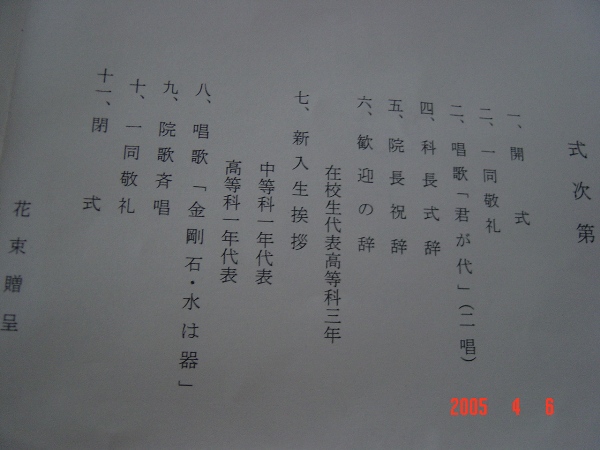 式次第
一、開式
二、一同敬礼
三、唱歌「君が代」（二唱）
四、科長式辞
五、院長祝辞
六、歓迎の辞
在校生代表高等科三年
七、新入生挨拶
中等科一年代表
高等科一年代表
八、唱歌「金剛石・水は器」
九、院歌斉唱
十、一同敬礼
十一、閉式
花束贈呈
2005 4 6